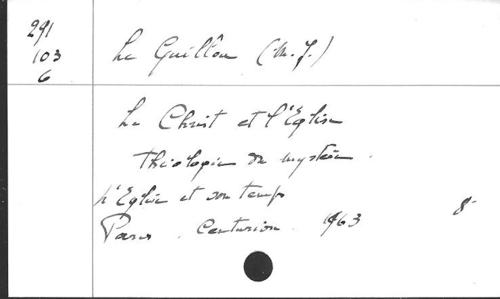 291
103
6
Le Guillou (M. J.)
Le Christ et l'Eglise
Théologie du mystère.
L'Eglise et son temps
Paris. Centurion. 1963 8°